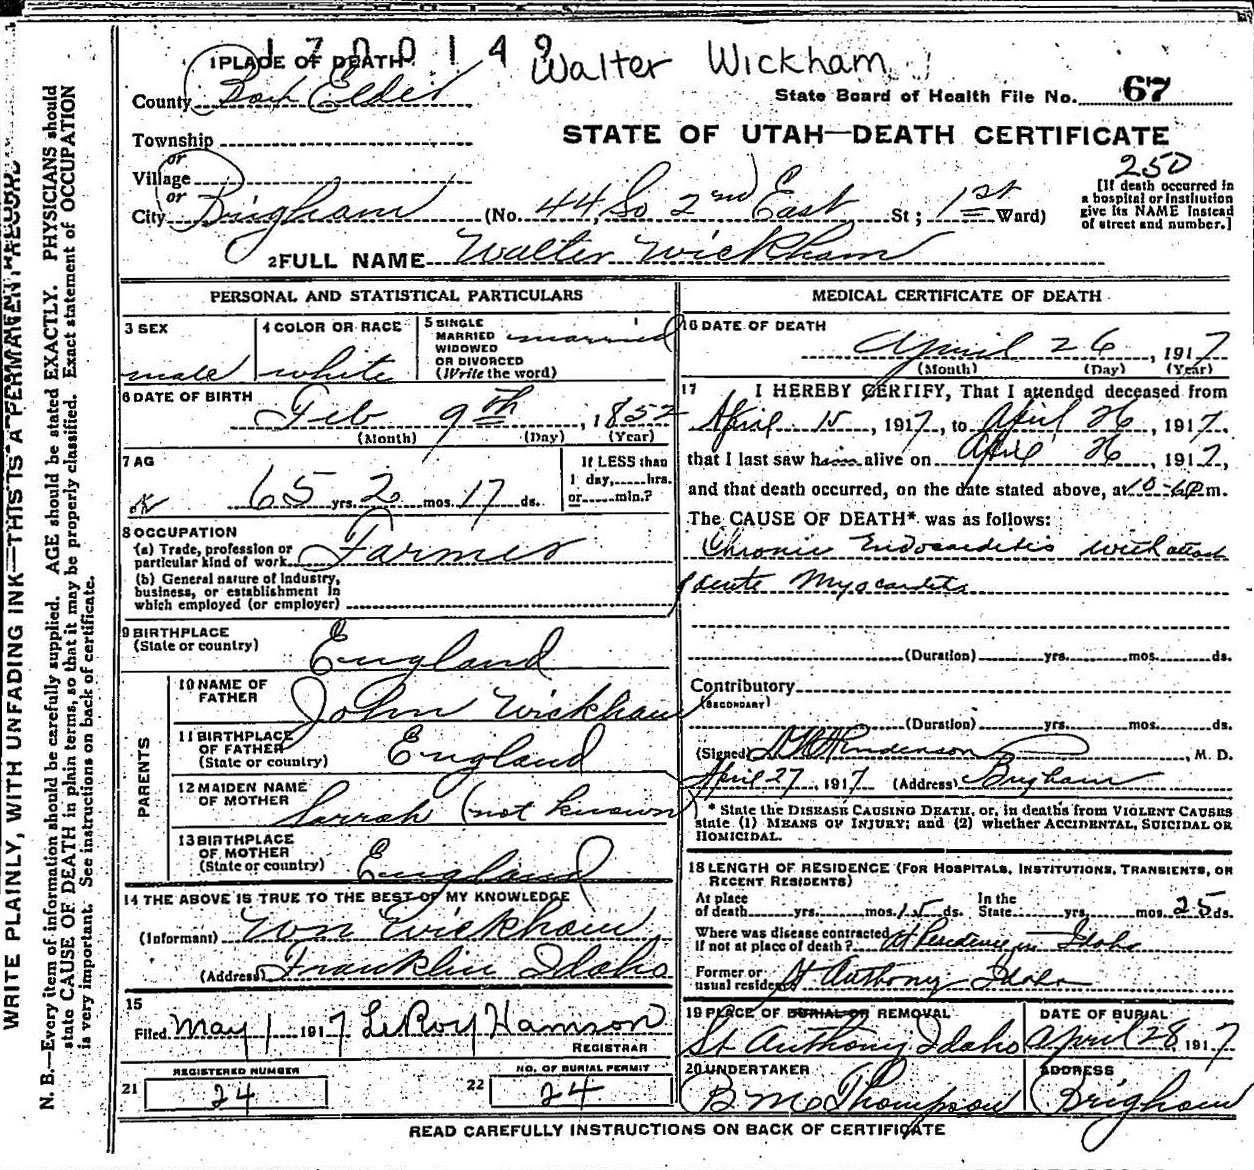 1700149 Walter Wickham
1 PLACE OF DEATH
County Box Elder
State Board of Health File No. 67
Township
or
Village
or
STATE OF UTAH—DEATH CERTIFICATE
250
City Brigham (No. 44 So 2nd East St; 1st Ward)
[If death occurred in
a hospital or institution
give its NAME instead
of street and number.]
2 FULL NAME Walter Wickham
PERSONAL AND STATISTICAL PARTICULARS
3 SEX
male
4 COLOR OR RACE
white
5 SINGLE
MARRIED married
WIDOWED
OR DIVORCED
(Write the word)
6 DATE OF BIRTH
Feb 9th, 1852
(Month) (Day) (Year)
7 AG
65 yrs. 2 mos. 17 ds.
If LESS than
1 day, hrs.
or min.?
8 OCCUPATION
(a) Trade, profession or
particular kind of work Farmer
(b) General nature of industry,
business, or establishment in
which employed (or employer)
9 BIRTHPLACE
(State or country) England
PARENTS
10 NAME OF
FATHER John Wickham
11 BIRTHPLACE
OF FATHER
(State or country) England
12 MAIDEN NAME
OF MOTHER Sarrah (not known)
13 BIRTHPLACE
OF MOTHER
(State or country) England
14 THE ABOVE IS TRUE TO THE BEST OF MY KNOWLEDGE
(Informant) Wm Wickham
(Address) Franklin Idaho
15
Filed May 1 1917 LeRoy Harrison
REGISTRAR
21 REGISTERED NUMBER
24
22 NO. OF BURIAL PERMIT
24
MEDICAL CERTIFICATE OF DEATH
16 DATE OF DEATH
April 26, 1917
(Month) (Day) (Year)
17 I HEREBY CERTIFY, That I attended deceased from
April 15, 1917, to April 26, 1917,
that I last saw him alive on April 26, 1917,
and that death occurred, on the date stated above, at 10 P.m.
The CAUSE OF DEATH* was as follows:
Chronic Endocarditis with attack
acute Myocardits
(Duration) yrs. mos. ds.
Contributory
(SECONDARY)
(Duration) yrs. mos. ds.
(Signed) Henderson, M. D.
April 27, 1917 (Address) Brigham
* State the DISEASE CAUSING DEATH, or, in deaths from VIOLENT CAUSES
state (1) MEANS OF INJURY; and (2) whether ACCIDENTAL, SUICIDAL OR
HOMICIDAL.
18 LENGTH OF RESIDENCE (FOR HOSPITALS, INSTITUTIONS, TRANSIENTS, OR
RECENT RESIDENTS)
At place
of death yrs. mos. 15 ds.
In the
State yrs. mos. 25 ds.
Where was disease contracted
if not at place of death? At Residence in Idaho
Former or
usual residence St Anthony Idaho
19 PLACE OF BURIAL OR REMOVAL
St Anthony Idaho
DATE OF BURIAL
April 28, 1917
20 UNDERTAKER
B M Thompson
ADDRESS
Brigham
READ CAREFULLY INSTRUCTIONS ON BACK OF CERTIFICATE
WRITE PLAINLY, WITH UNFADING INK—THIS IS A PERMANENT RECORD
N. B.—Every item of information should be carefully supplied. AGE should be stated EXACTLY. PHYSICIANS should
state CAUSE OF DEATH in plain terms, so that it may be properly classified. Exact statement of OCCUPATION
is very important. See instructions on back of certificate.